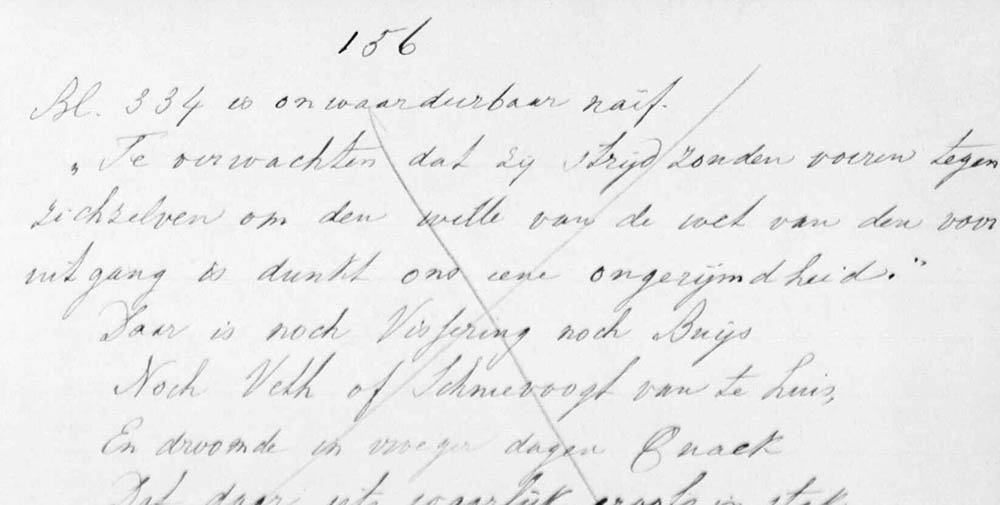 156
Bl. 334 is onwaardeerbaar naïf.
„Te verwachten dat zij strijd zouden voeren tegen
zichzelven om den wille van de wet van den voor
uitgang is dunkt ons eene ongerijmdheid."
Daar is noch Vissering noch Buijs
Noch Veth of Schneevoogt van te huis,
En droomde in vroeger dagen Quack
Dat daar iets waarlijk groots in stak